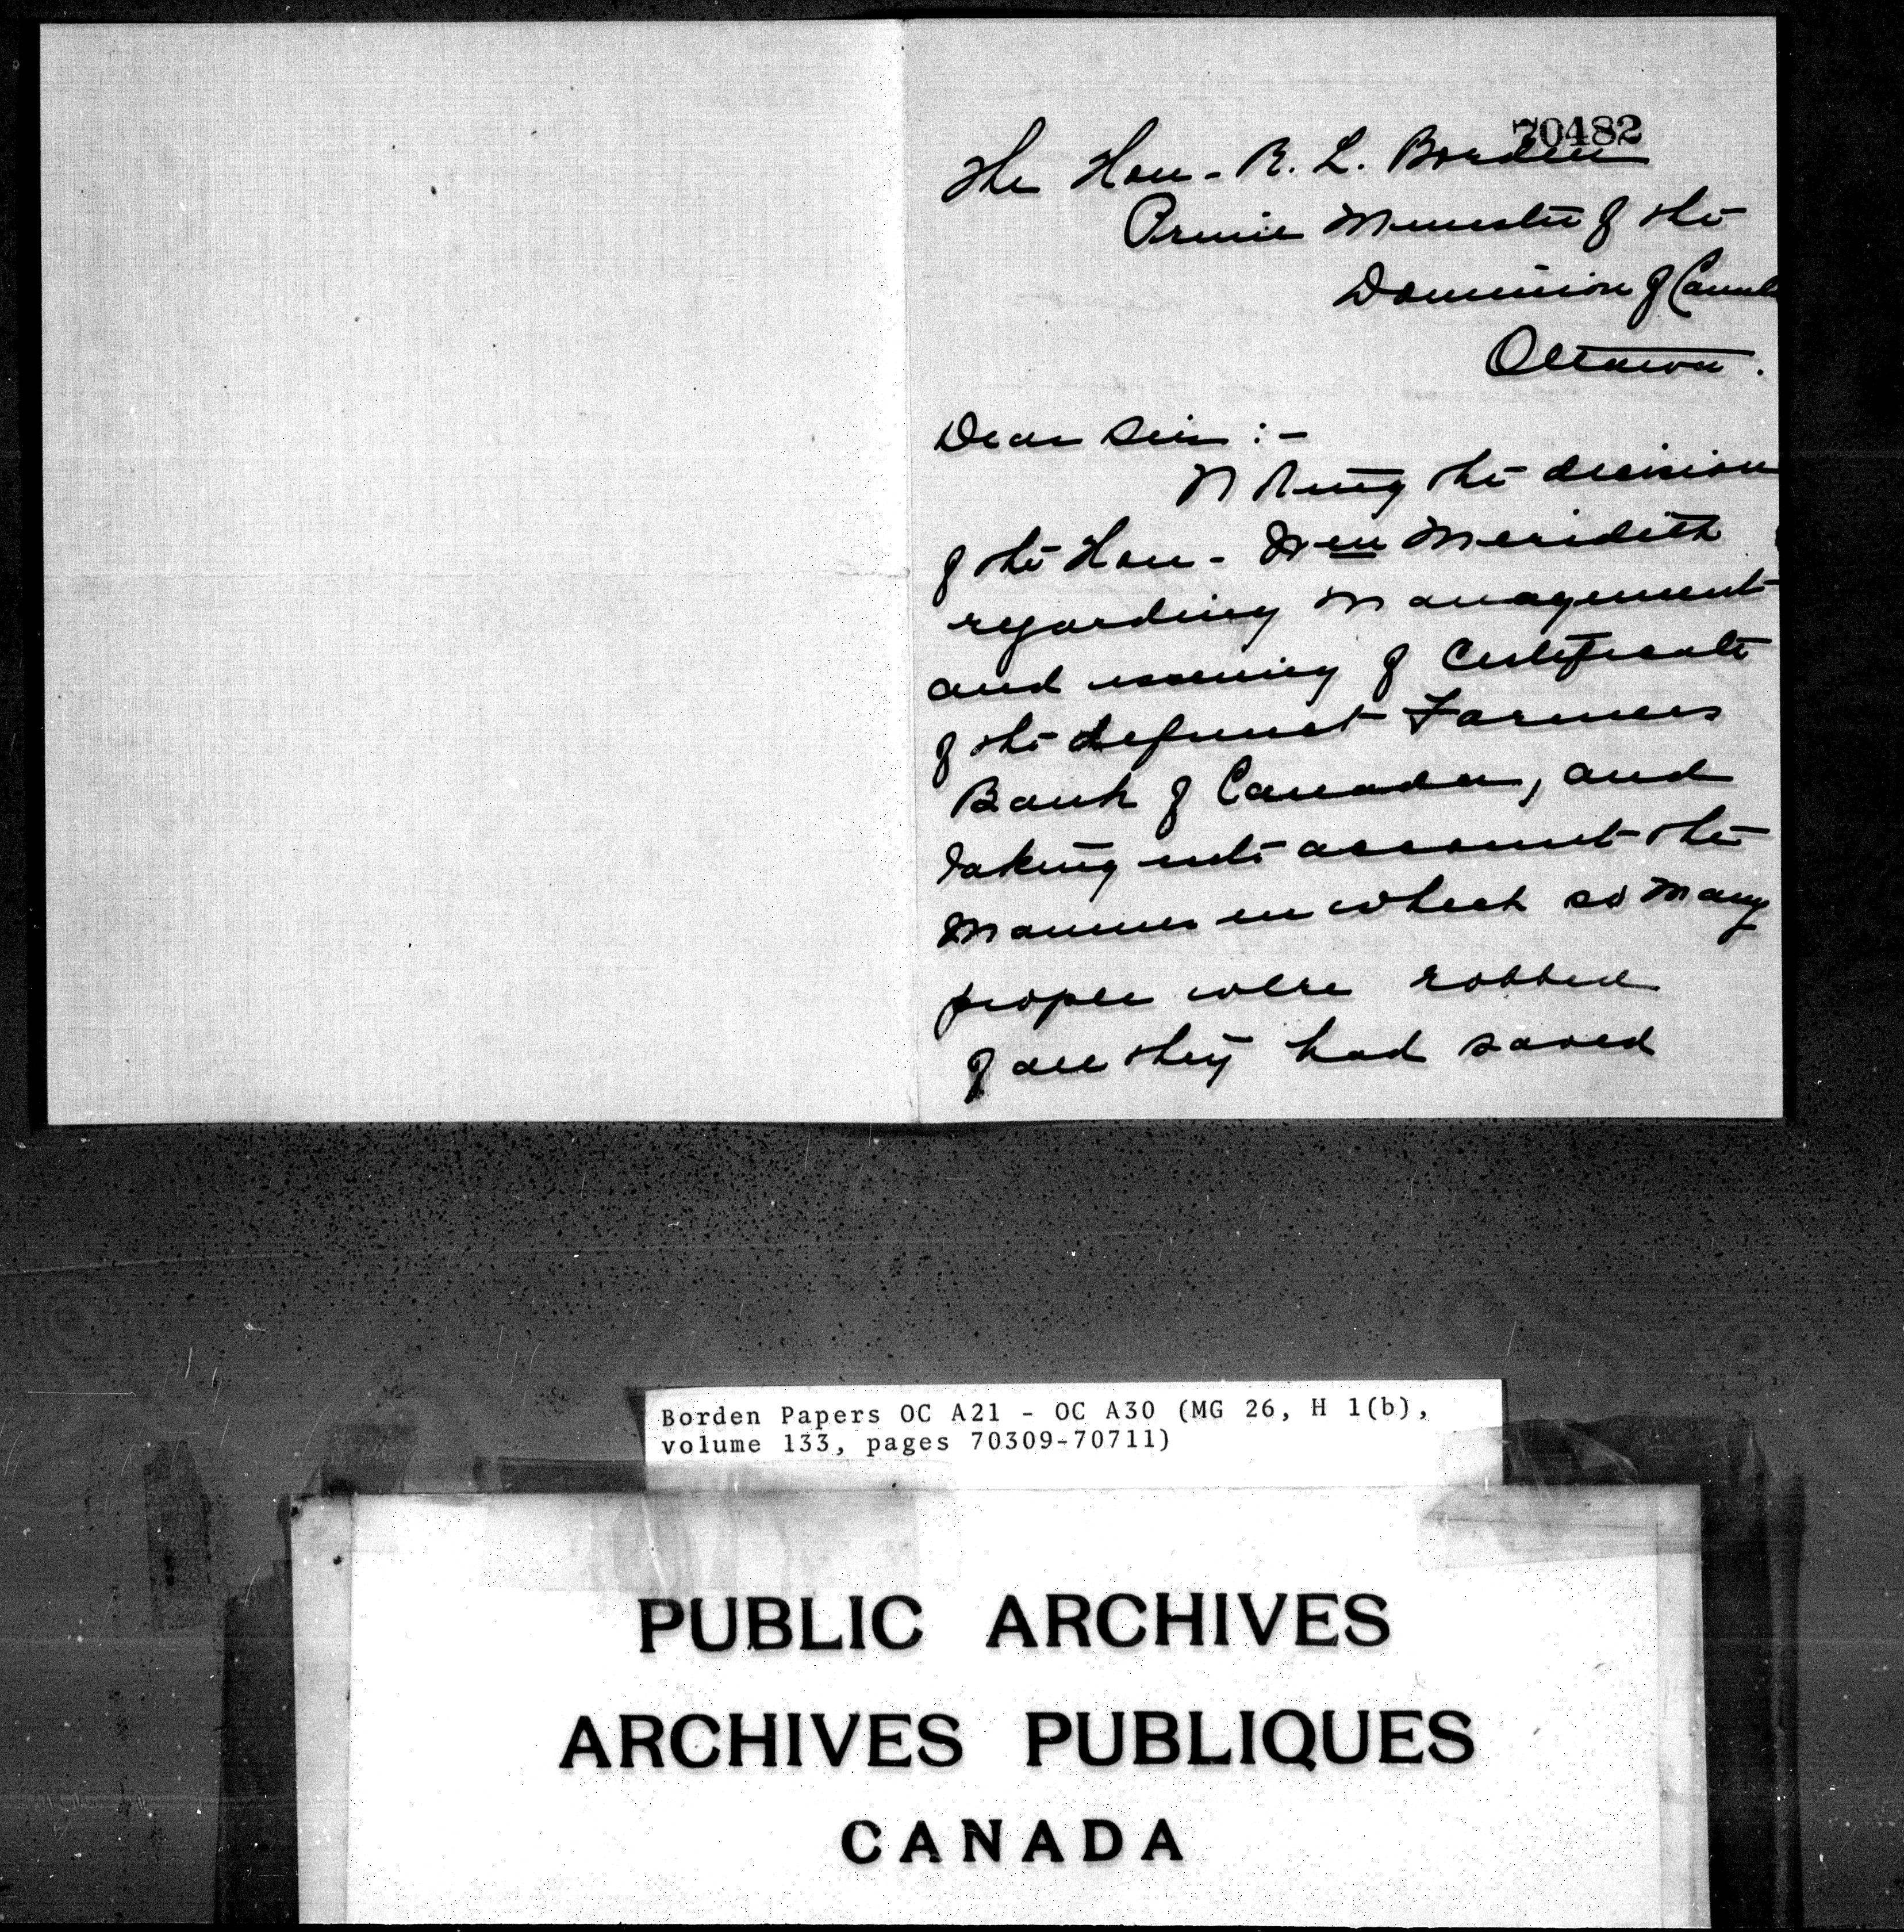 70482
The Hon- R. L. Borden
Prime Minister of the
Dominion of Canada
Ottawa.
Dear Sir :-
Noting the decision
of the Hon- Wm Meridith
regarding management
and issuing of Certificate
of the defunct Farmers
Bank of Canada, and
taking into account the
manner in which so many
people were robbed
of all they had saved
Borden Papers OC A21 - OC A30 (MG 26, H 1(b),
volume 133, pages 70309-70711)
PUBLIC ARCHIVES
ARCHIVES PUBLIQUES
CANADA